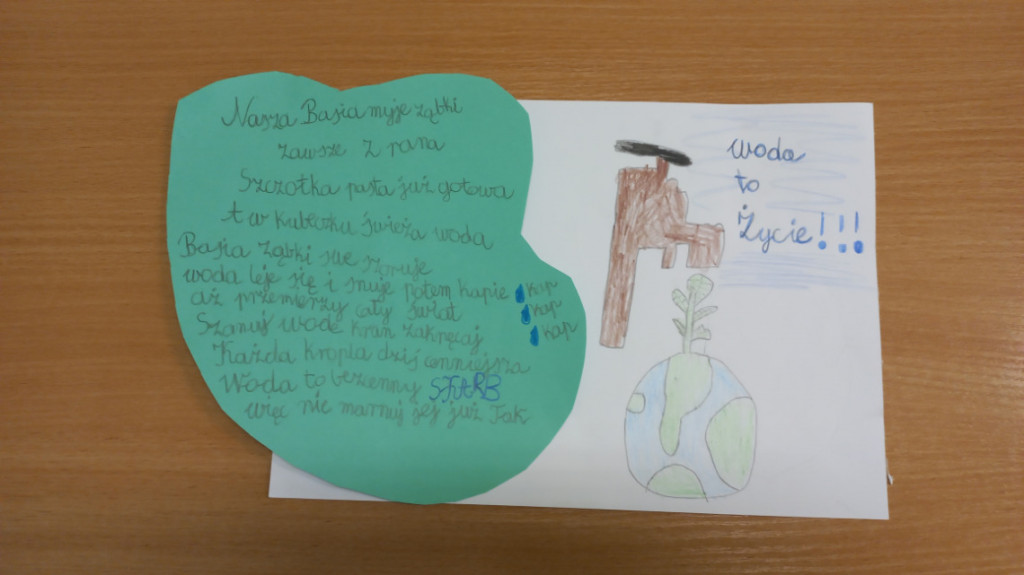 Nasza Basia myje ząbki
zawsze z rana
Szczotka pasta już gotowa
A w kubeczku świeża woda
Basia ząbki swe szoruje
woda leje się i snuje potem kapie kap
aż przemierzy cały świat kap
Szanuj wodę kran zakręcaj kap
Każda kropla dziś cenniejsza
Woda to bezcenny SKARB
więc nie marnuj jej już Tak
Woda
to
Życie!!!